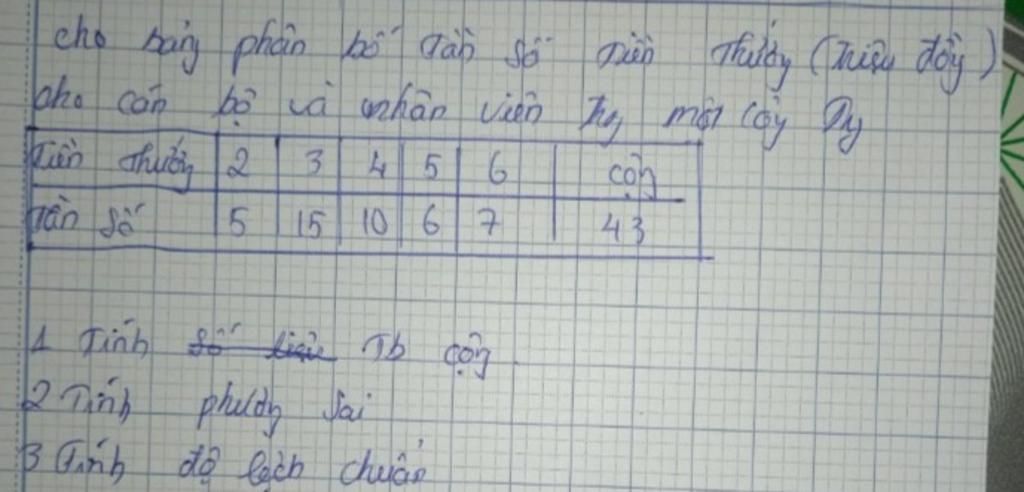 cho bảng phân bố tần số tiền thưởng (triệu đồng)
cho cán bộ và nhân viên một công ty
Tiền thưởng 2 3 4 5 6 cộng
Tần số 5 15 10 6 7 43
1 Tính số liệu Tb cộng
2 Tính phương sai
3 Tính độ lệch chuẩn